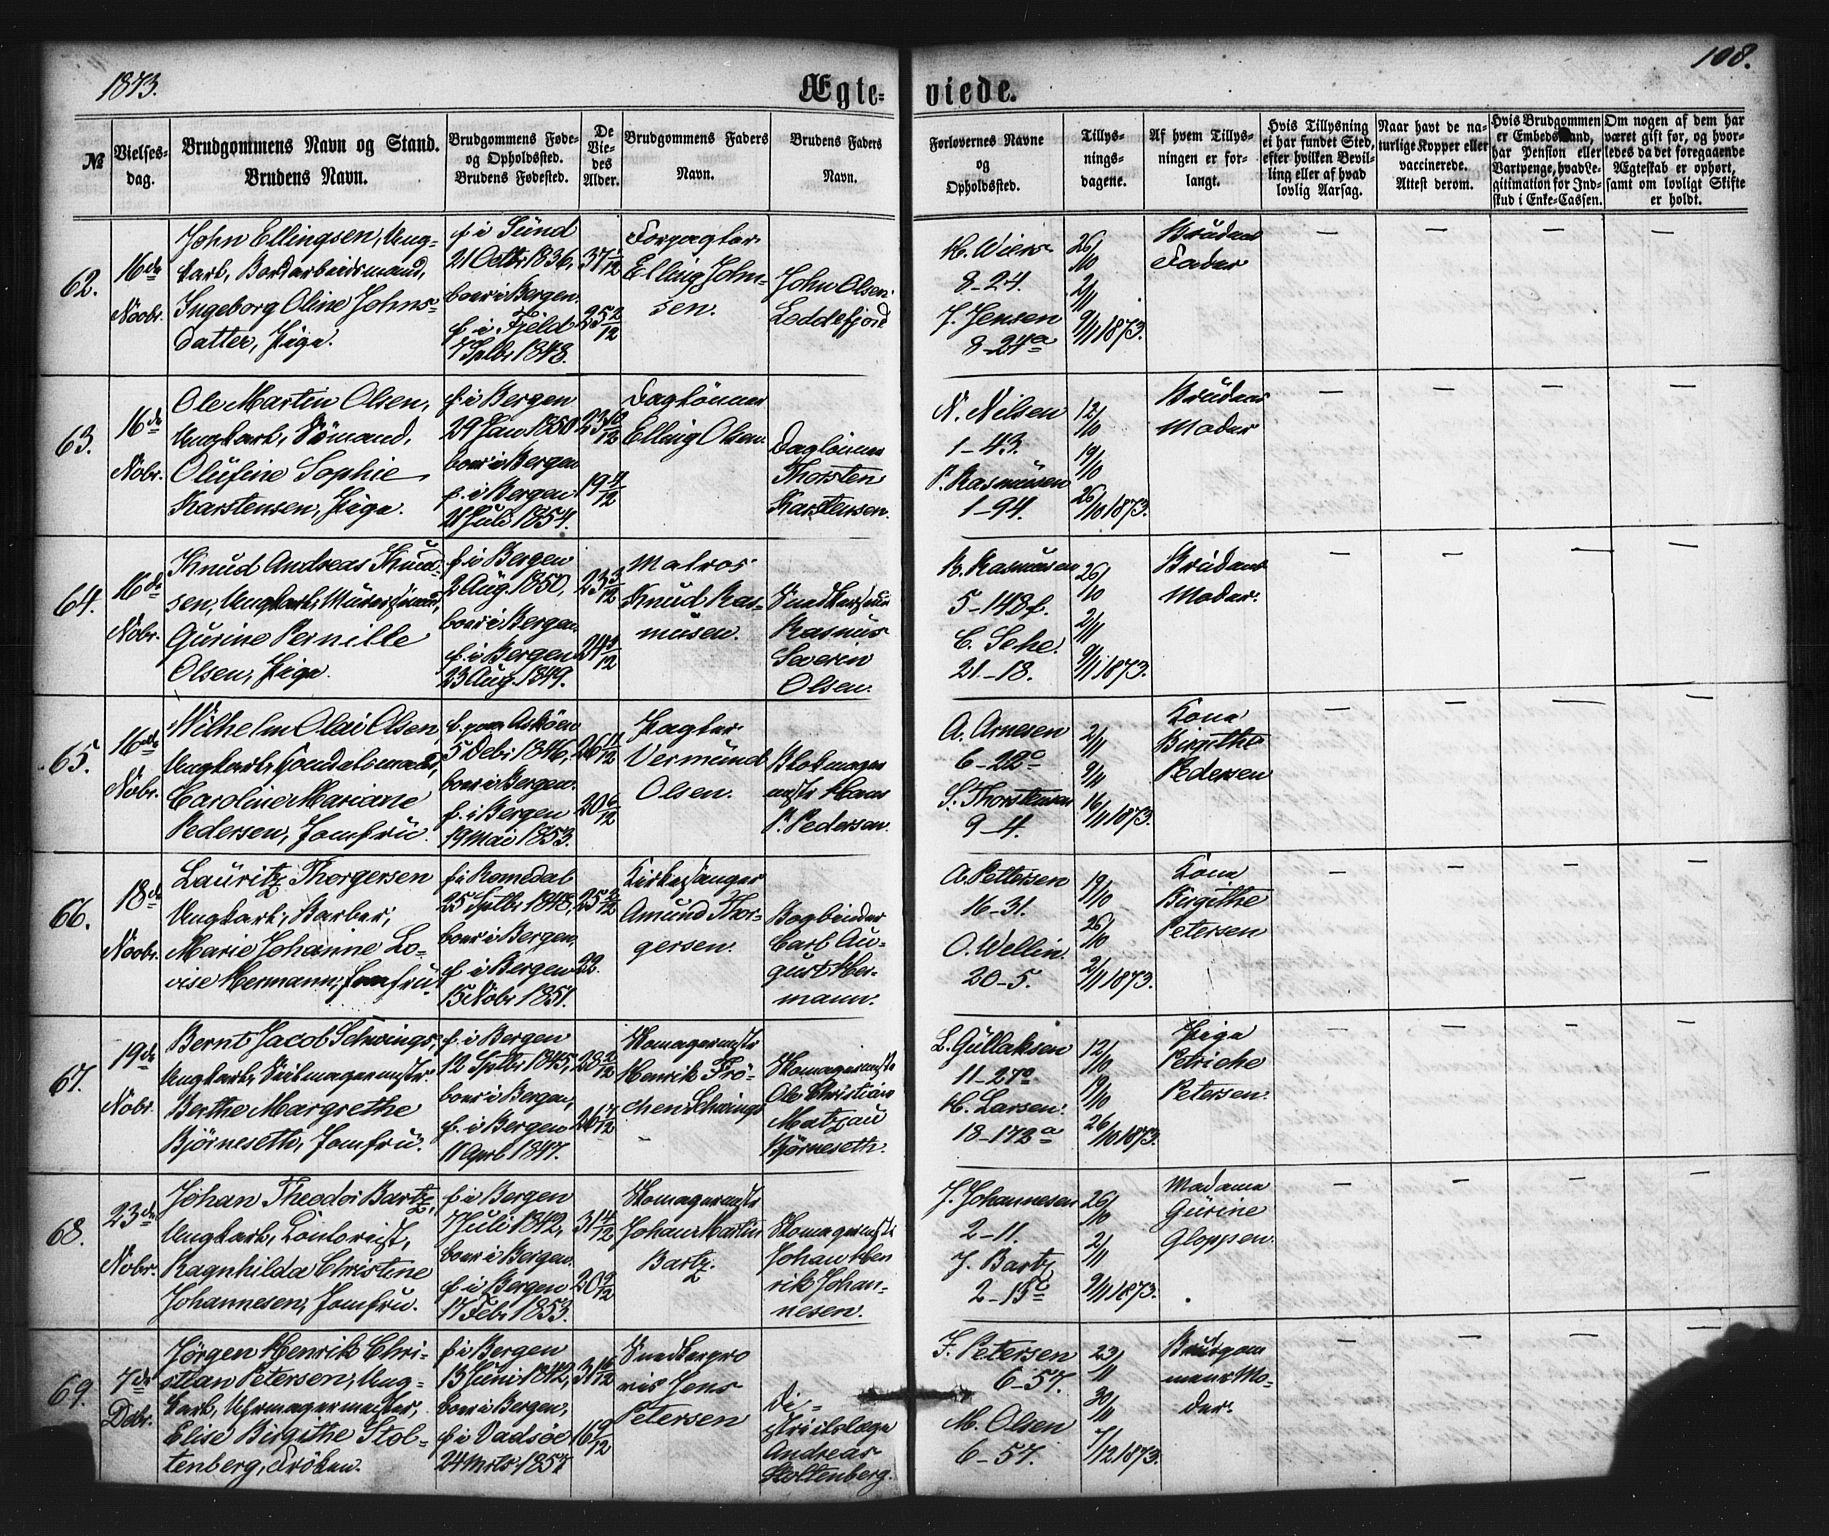 1873.
Ægte-
viede.
108.
№
Vielses-
dag.
Brudgommens Navn og Stand.
Brudens Navn.
Brudgommens Føde-
og Opholdssted.
Brudens Fødested.
De
Vie-
des
Alder.
Brudgommens Faders
Navn.
Brudens Faders
Navn.
Forlovernes Navne
og
Opholdssted.
Tillys-
nings-
dagene.
Af hvem Tillys-
ningen er for-
langt.
Hvis Tillysning
ei har fundet Sted,
efter hvilken Bevil-
ling eller af hvad
lovlig Aarsag.
Naar havt de na-
turlige Kopper eller
vaccinerede.
Attest derom.
Hvis Brudgommen
er Embedsmand,
har Pension eller
Vartpenge, hvad Le-
gitimation for Ind-
skud i Enke-Cassen.
Om nogen af dem har
været gift før, og hvor-
ledes da det foregaaende
Ægteskab er ophørt,
samt om lovligt Skifte
er holdt.
62.
16de
Novbr.
John Ellingsen, Ung-
karl, Bordarbeidsmand,
Ingeborg Oline Johns-
datter, Pige.
f. i Sund
21 Octb. 1836,
boer i Bergen.
f. i Fjeld
7 Sptb. 1848.
37 1/12
25 2/12
Forpagter
Elling John-
sen.
John Olsen
Loddefjord
H. Wiers
8-24.
J. Jensen
8-24a
26/10
2/11
9/11 1873.
Brudens
Fader
63.
16de
Nobr.
Ole Martin Olsen,
Ungkarl, Sømand,
Olufine Sophie
Karstensen, Pige.
f. i Bergen
29 Jan 1850.
boer i Bergen
f. i Bergen
21 Juli 1854.
23 10/12
19 4/12
Daglønner
Elling Olsen.
Daglønner
Thorsten
Karstensen.
N. Nilsen
1-43.
P. Rasmussen
1-94.
12/10
19/10
26/10 1873.
Brudens
Moder
64.
16de
Nobr.
Knud Andreas Knud-
sen, Ungkarl, Murersvend,
Gurine Pernille
Olsen, Pige.
f. i Bergen
2 Aug. 1850,
boer i Bergen
f. i Bergen
23 Aug. 1849.
23 3/12
24 3/12
Matros
Knud Ras-
musen.
Snedkersvend
Rasmus
Severin
Olsen.
K. Rasmusen
5-148f.
C. Sehe.
21-18.
26/10
2/11
9/11 1873.
Brudens
Moder.
65.
16de
Nobr.
Wilhelm Olai Olsen
Ungkarl, Handelsmand,
Caroline Mariane
Pedersen, Jomfru.
f. paa Askøen
5 Debr. 1846,
boer i Bergen.
f. i Bergen
19 Mai 1853.
26 11/12
20 6/12
Pagter
Vermund
Olsen.
Blokmager
mster Hans
P. Pedersen.
A. Arnesen
6-22c
S. Thorstensen
9-4.
2/11
9/11
16/11 1873.
Kone
Birgithe
Pedersen
66.
18de
Novbr.
Lauritz Thorgersen
Ungkarl, Barber,
Marie Johanne Lo-
vise Hermann, Jomfru.
f. i Romedal
25 Sptb. 1848,
boer i Bergen,
f. i Bergen
15 Nobr. 1851.
25 2/12
22.
Kirkesanger
Amund Thor-
gersen.
Bogbinder
Carl Au-
gust Her-
mann.
A. Pettersen
16-31.
O. Wellin.
20-5.
19/10
26/10
2/11 1873.
Kone
Birgithe
Petersen
67.
19de
Nobr.
Bernt Jacob Schwings,
Ungkarl, Seilmagermster.
Berthe Margrethe
Bjørneseth, Jomfru.
f. i Bergen
12 Sptb. 1845,
boer i Bergen,
f. i Bergen
11 April 1847.
28 2/12
26 7/12
Skomagermstr
Henrik Frö-
chen Schwings
Skomagermstr
Ole Christian
Matzau
Bjørneseth.
L. Gullaksen
11-27a.
H. Larsen.
18-172a
12/10
19/10
26/10 1873.
Pige
Petriche
Petersen.
68.
23de
Nobr.
Johan Theodor Bartz,
Ungkarl, Contorist,
Ragnhilda Christine
Johannesen, Jomfru.
f. i Bergen
7 Juli 1842,
boer i Bergen.
f. i Bergen
17 Feb. 1853.
31 4/12
20 9/12
Skomagermstr
Johan Martin
Bartz.
Skomagermstr
Johan Hen
rik Johan-
nesen.
J. Johannesen
2-11.
J. Bartz
2-15c
26/10
2/11
9/11 1873.
Madame
Gurine
Gloppen.
69.
7de
Debr.
Jørgen Henrik Chri-
stian Petersen, Ung-
karl, Uhrmagermester,
Elise Birgithe Stol-
tenberg, Frøken.
f. i Bergen
13 Juni 1842,
boer i Bergen,
f. i Vadsøe
24 Mrts. 1857
31 6/12
16 9/12
Snedkerpro
vis Jens
Petersen
Di-
strictslæge
Andreas
Stoltenberg.
F. Petersen
6-57.
M. Olsen
6-57.
23/11
30/11
7/12 1873.
Brudgom
mens Mo-
der.